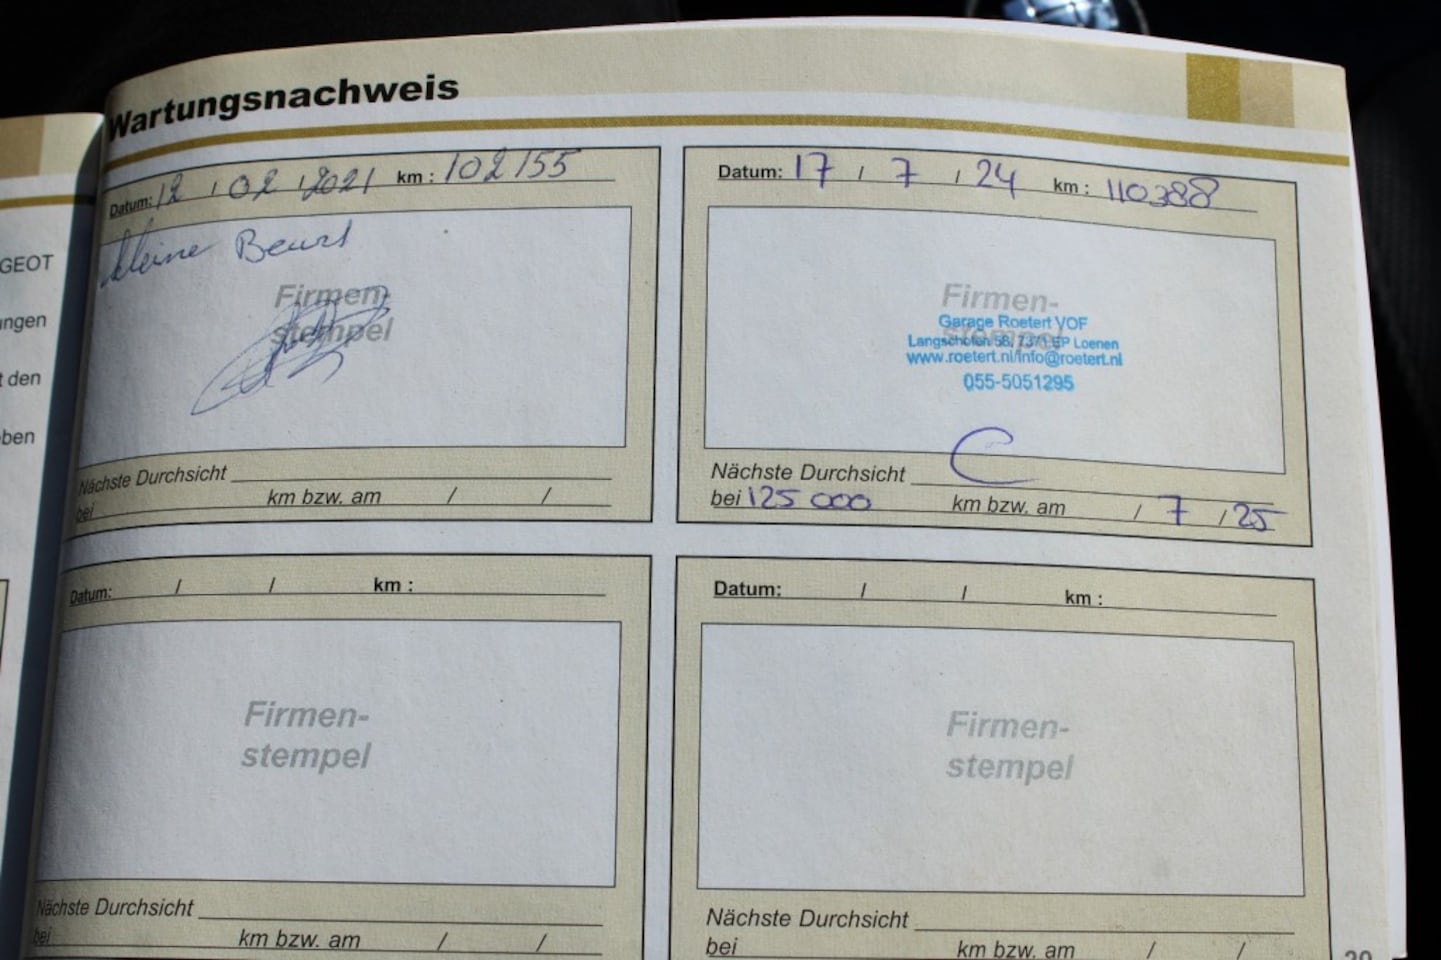 Wartungsnachweis
GEOT
ungen
t den
ben
Datum: 12 / 02 / 2021 km : 102155
kleine Beurt
Firmen-
stempel
Nächste Durchsicht
bei km bzw. am / /
Datum: 17 / 7 / 24 km : 110388
Firmen-
stempel
Garage Roetert VOF
Langschoten 58, 7371 EP Loenen
www.roetert.nl/info@roetert.nl
055-5051295
Nächste Durchsicht
bei 125 000 km bzw. am / 7 / 25
Datum: / / km :
Firmen-
stempel
Nächste Durchsicht
bei km bzw. am / /
Datum: / / km :
Firmen-
stempel
Nächste Durchsicht
bei km bzw. am / /